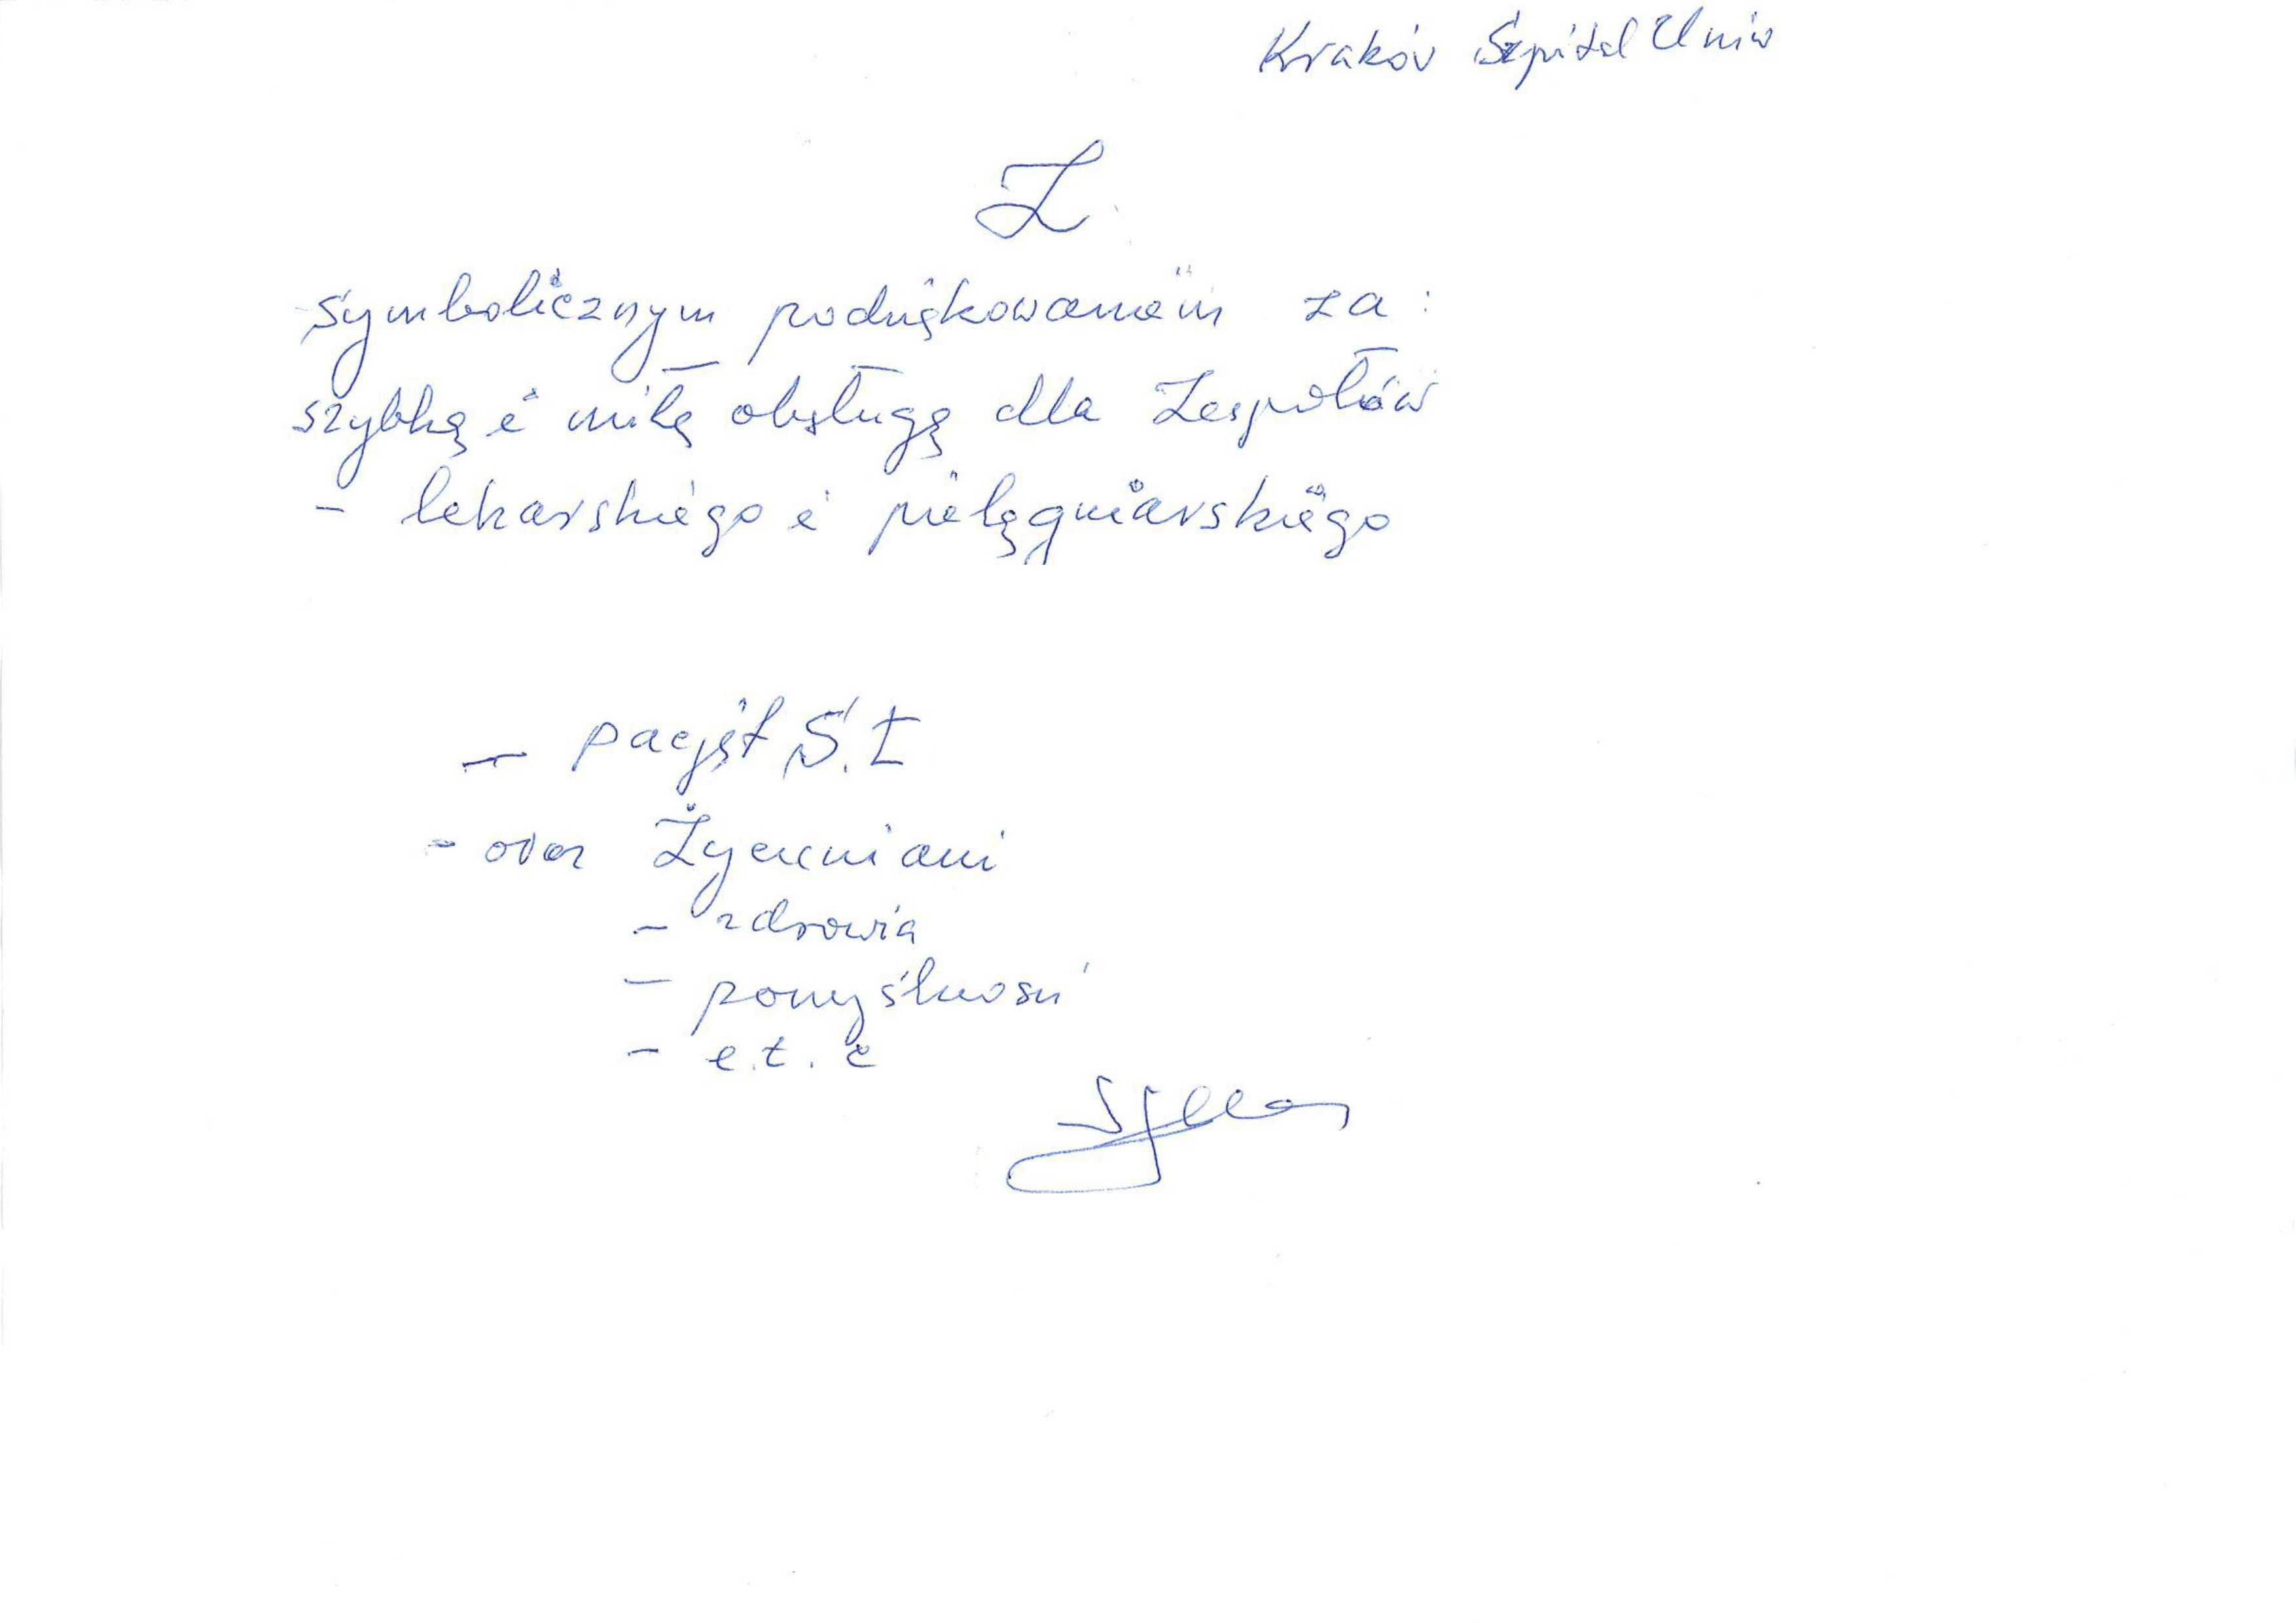 Kraków Szpital Uniw
Z
symbolicznym podziękowaniem za:
szybką i miłą obsługę dla Zespołów
- lekarskiego i pielęgniarskiego
- pacjęt S.Ł
- oraz Życzeniami
- zdrowia
- pomyślności
- e.t.c